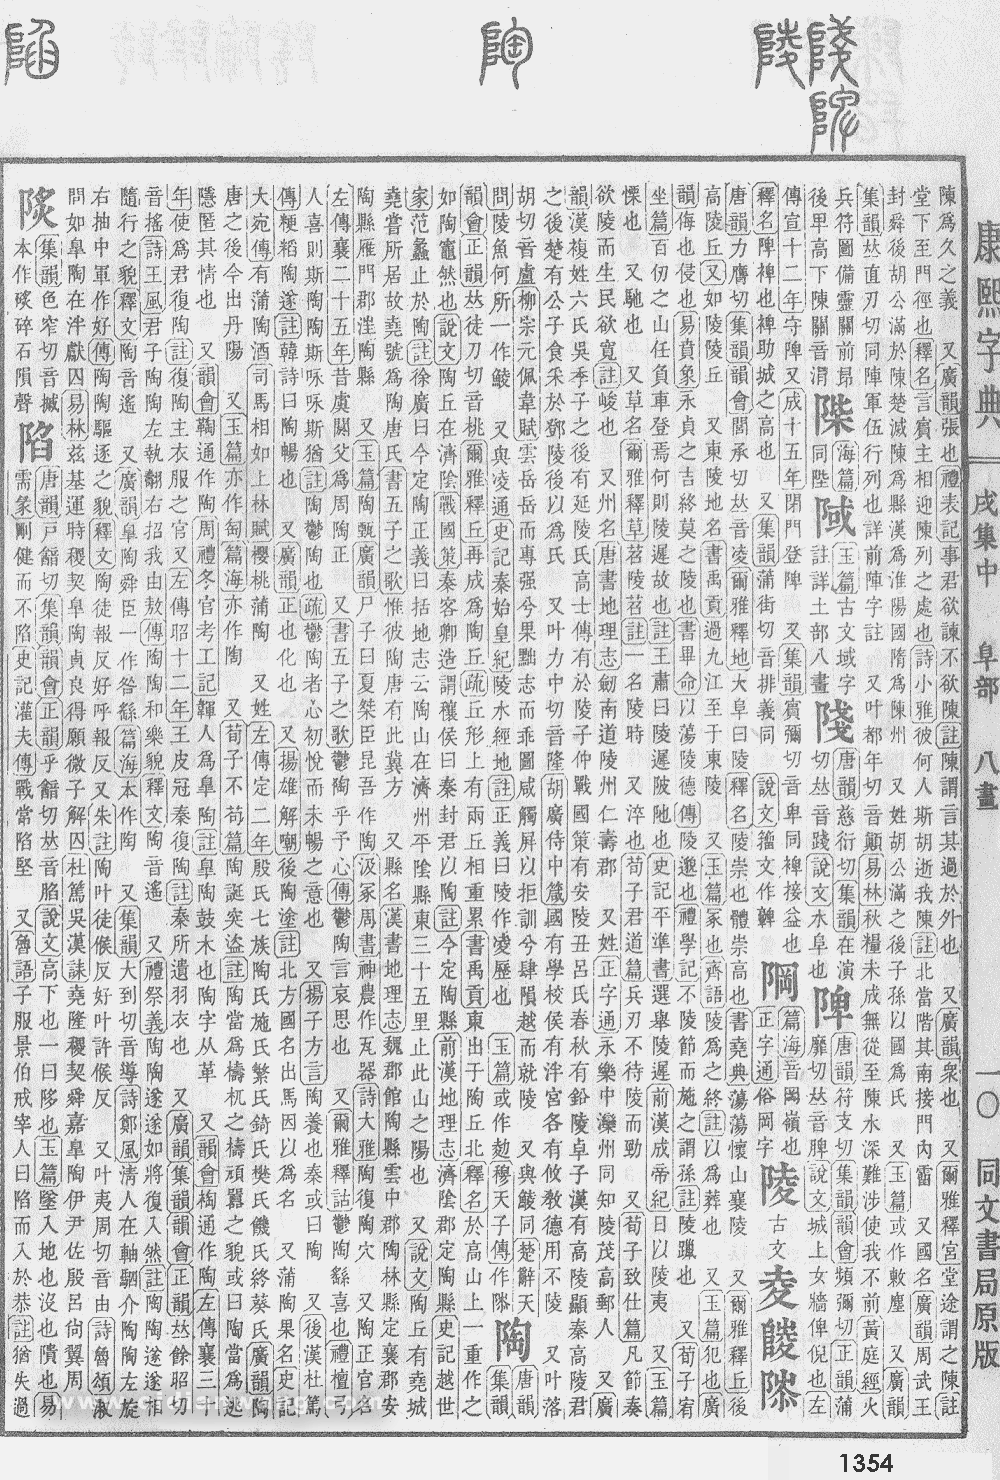 康熙字典 戌集中 阜部 八畫 一〇 同文書局原版
陳爲久之義 又廣韻張也禮表記事君欲諫不欲陳註陳謂言其過於外也 又廣韻衆也 又爾雅釋宮堂途謂之陳註
堂下至門徑也釋名言賓主相迎陳列之處也詩小雅彼何人斯胡逝我陳註北當階其南接門內霤 又國名廣韻周武王
封舜後胡公滿於陳楚滅陳爲縣漢爲淮陽國隋爲陳州 又姓胡公滿之後子孫以國爲氏 又玉篇或作敶塵 又廣韻
集韻𠀤直刃切同陣軍伍行列也詳前陣字註 又叶都年切音顚易林秋糧未成無從至陳水深難涉使我不前黃庭經火
兵符圖備靈關前昻後𤰞高下陳關音湑
陛海篇同陛
𨺲玉篇古文域字註詳土部八畫
䧖唐韻慈衍切集韻在演切𠀤音踐說文水阜也
陴唐韻符支切集韻韻會頻彌切正韻蒲
靡切𠀤音脾說文城上女牆俾倪也左
傳宣十二年守陴又成十五年閉門登陴 又集韻賓彌切音卑同裨接益也
釋名陴裨也裨助城之高也 又集韻蒲街切音排義同 說文籀文作𩫫
𨺬篇海音岡嶺也正字通俗岡字
陵古文夌餕𨻫
唐韻力膺切集韻韻會閭承切𠀤音凌爾雅釋地大阜曰陵釋名陵崇也體崇高也書堯典蕩蕩懷山襄陵 又爾雅釋丘後
高陵丘又如陵陵丘 又東陵地名書禹貢過九江至于東陵 又玉篇冢也齊語陵爲之終註以爲葬也 又玉篇犯也廣
韻侮也侵也易賁象永貞之吉終莫之陵也書畢命以蕩陵德傳陵邈也禮學記不陵節而施之謂孫註陵躐也 又荀子宥
坐篇百仞之山任負車登焉何則陵遲故也註王肅曰陵遲陂阤也史記平準書選舉陵遲前漢成帝紀日以陵夷 又玉篇
慄也 又馳也 又草名爾雅釋草苕陵苕註一名陵時 又淬也荀子君道篇兵刃不待陵而勁 又荀子致仕篇凡節奏
欲陵而生民欲寬註峻也 又州名唐書地理志劒南道陵州仁壽郡 又姓正字通永樂中灤州同知陵茂高郵人 又廣
韻漢複姓六氏吳季子之後有延陵氏高士傳有於陵子仲戰國策有安陵丑呂氏春秋有鉛陵卓子漢有高陵顯秦高陵君
之後楚有公子食采於鄧陵後以爲氏 又叶力中切音隆胡廣侍中箴國有學校侯有泮宮各有攸敎德用不陵 又叶落
胡切音盧柳宗元佩韋賦雲岳岳而專强兮果黜志而乖圖咸觸屏以拒訓兮肆隕越而就陵 又與鯪同楚辭天
問陵魚何所一作鯪 又與凌通史記秦始皇紀陵水經地註正義曰陵作凌歷也 玉篇或作夌𡴆穆天子傳作𨺈
陶唐韻集韻
韻會正韻𠀤徒刀切音桃爾雅釋丘再成爲陶丘疏丘形上有兩丘相重累書禹貢東出于陶丘北釋名於高山上一重作之
如陶竈然也說文陶丘在濟隂戰國策秦客卿造謂穰侯曰秦封君以陶註今定陶縣前漢地理志濟隂郡定陶縣史記越世
家范蠡止於陶註徐廣曰今定陶正義曰括地志云陶山在濟州平隂縣東三十五里止此山之陽也 又說文陶丘有堯城
堯嘗所居故堯號爲陶唐氏書五子之歌惟彼陶唐有此冀方 又縣名漢書地理志魏郡館陶縣雲中郡陶林縣定襄郡安
陶縣雁門郡㳹陶縣 又玉篇陶甄廣韻尸子曰夏桀臣昆吾作陶汲冢周書神農作瓦器詩大雅陶復陶穴 又正官名
左傳襄二十五年昔虞閼父爲周陶正 又書五子之歌鬱陶乎予心傳鬱陶言哀思也 又爾雅釋詁鬱陶繇喜也禮檀弓
人喜則斯陶陶斯咏咏斯猶註陶鬱陶也疏鬱陶者心初悅而未暢之意也 又揚子方言陶養也秦或曰陶 又後漢杜篤
傳粳稻陶遂註韓詩曰陶暢也 又廣韻正也化也 又揚雄解嘲後陶塗註北方國名出馬因以爲名 又蒲陶果名史記
大宛傳有蒲陶酒司馬相如上林賦櫻桃蒲陶 又姓左傳定二年殷氏七族陶氏施氏繁氏錡氏樊氏饑氏終葵氏廣韻陶
唐之後今出丹陽 又玉篇亦作匋篇海亦作陶 又荀子不苟篇陶誕突盜註陶當爲檮杌之檮頑嚚之貌或曰陶當爲逃
隱匿其情也 又韻會鞠通作陶周禮冬官考工記韗人爲臯陶註臯陶鼓木也陶字从革 又韻會㮈通作陶左傳襄三十
年使爲君復陶註復陶主衣服之官又左傳昭十二年王皮冠秦復陶註秦所遺羽衣也 又廣韻集韻韻會正韻𠀤餘昭切
音搖詩王風君子陶陶左執翿右招我由敖傳陶陶和樂貌釋文陶音遙 又禮祭義陶陶遂遂如將復入然註陶陶遂遂相
隨行之貌釋文陶音遙 又廣韻臯陶舜臣一作咎繇篇海本作陶 又集韻大到切音導詩鄭風淸人在軸駟介陶陶左旋
右抽中軍作好傳陶陶驅逐之貌釋文陶徒報反好呼報反又朱註陶叶徒候反好叶許候反 又叶夷周切音由詩魯頌淑
問如臯陶在泮獻囚易林兹基運時稷契臯陶貞良得願微子解囚杜篤吳漢誄堯隆稷契舜嘉臯陶伊尹佐殷呂尙翼周
䧝集韻色窄切音摵本作㩇碎石隕聲
陷唐韻戸韽切集韻韻會正韻乎韽切𠀤音臽說文高下也一曰陊也玉篇墜入地也沒也隤也易
需彖剛健而不陷史記灌夫傳戰常陷堅 又魯語子服景伯戒宰人曰陷而入於恭註猶失過
1354